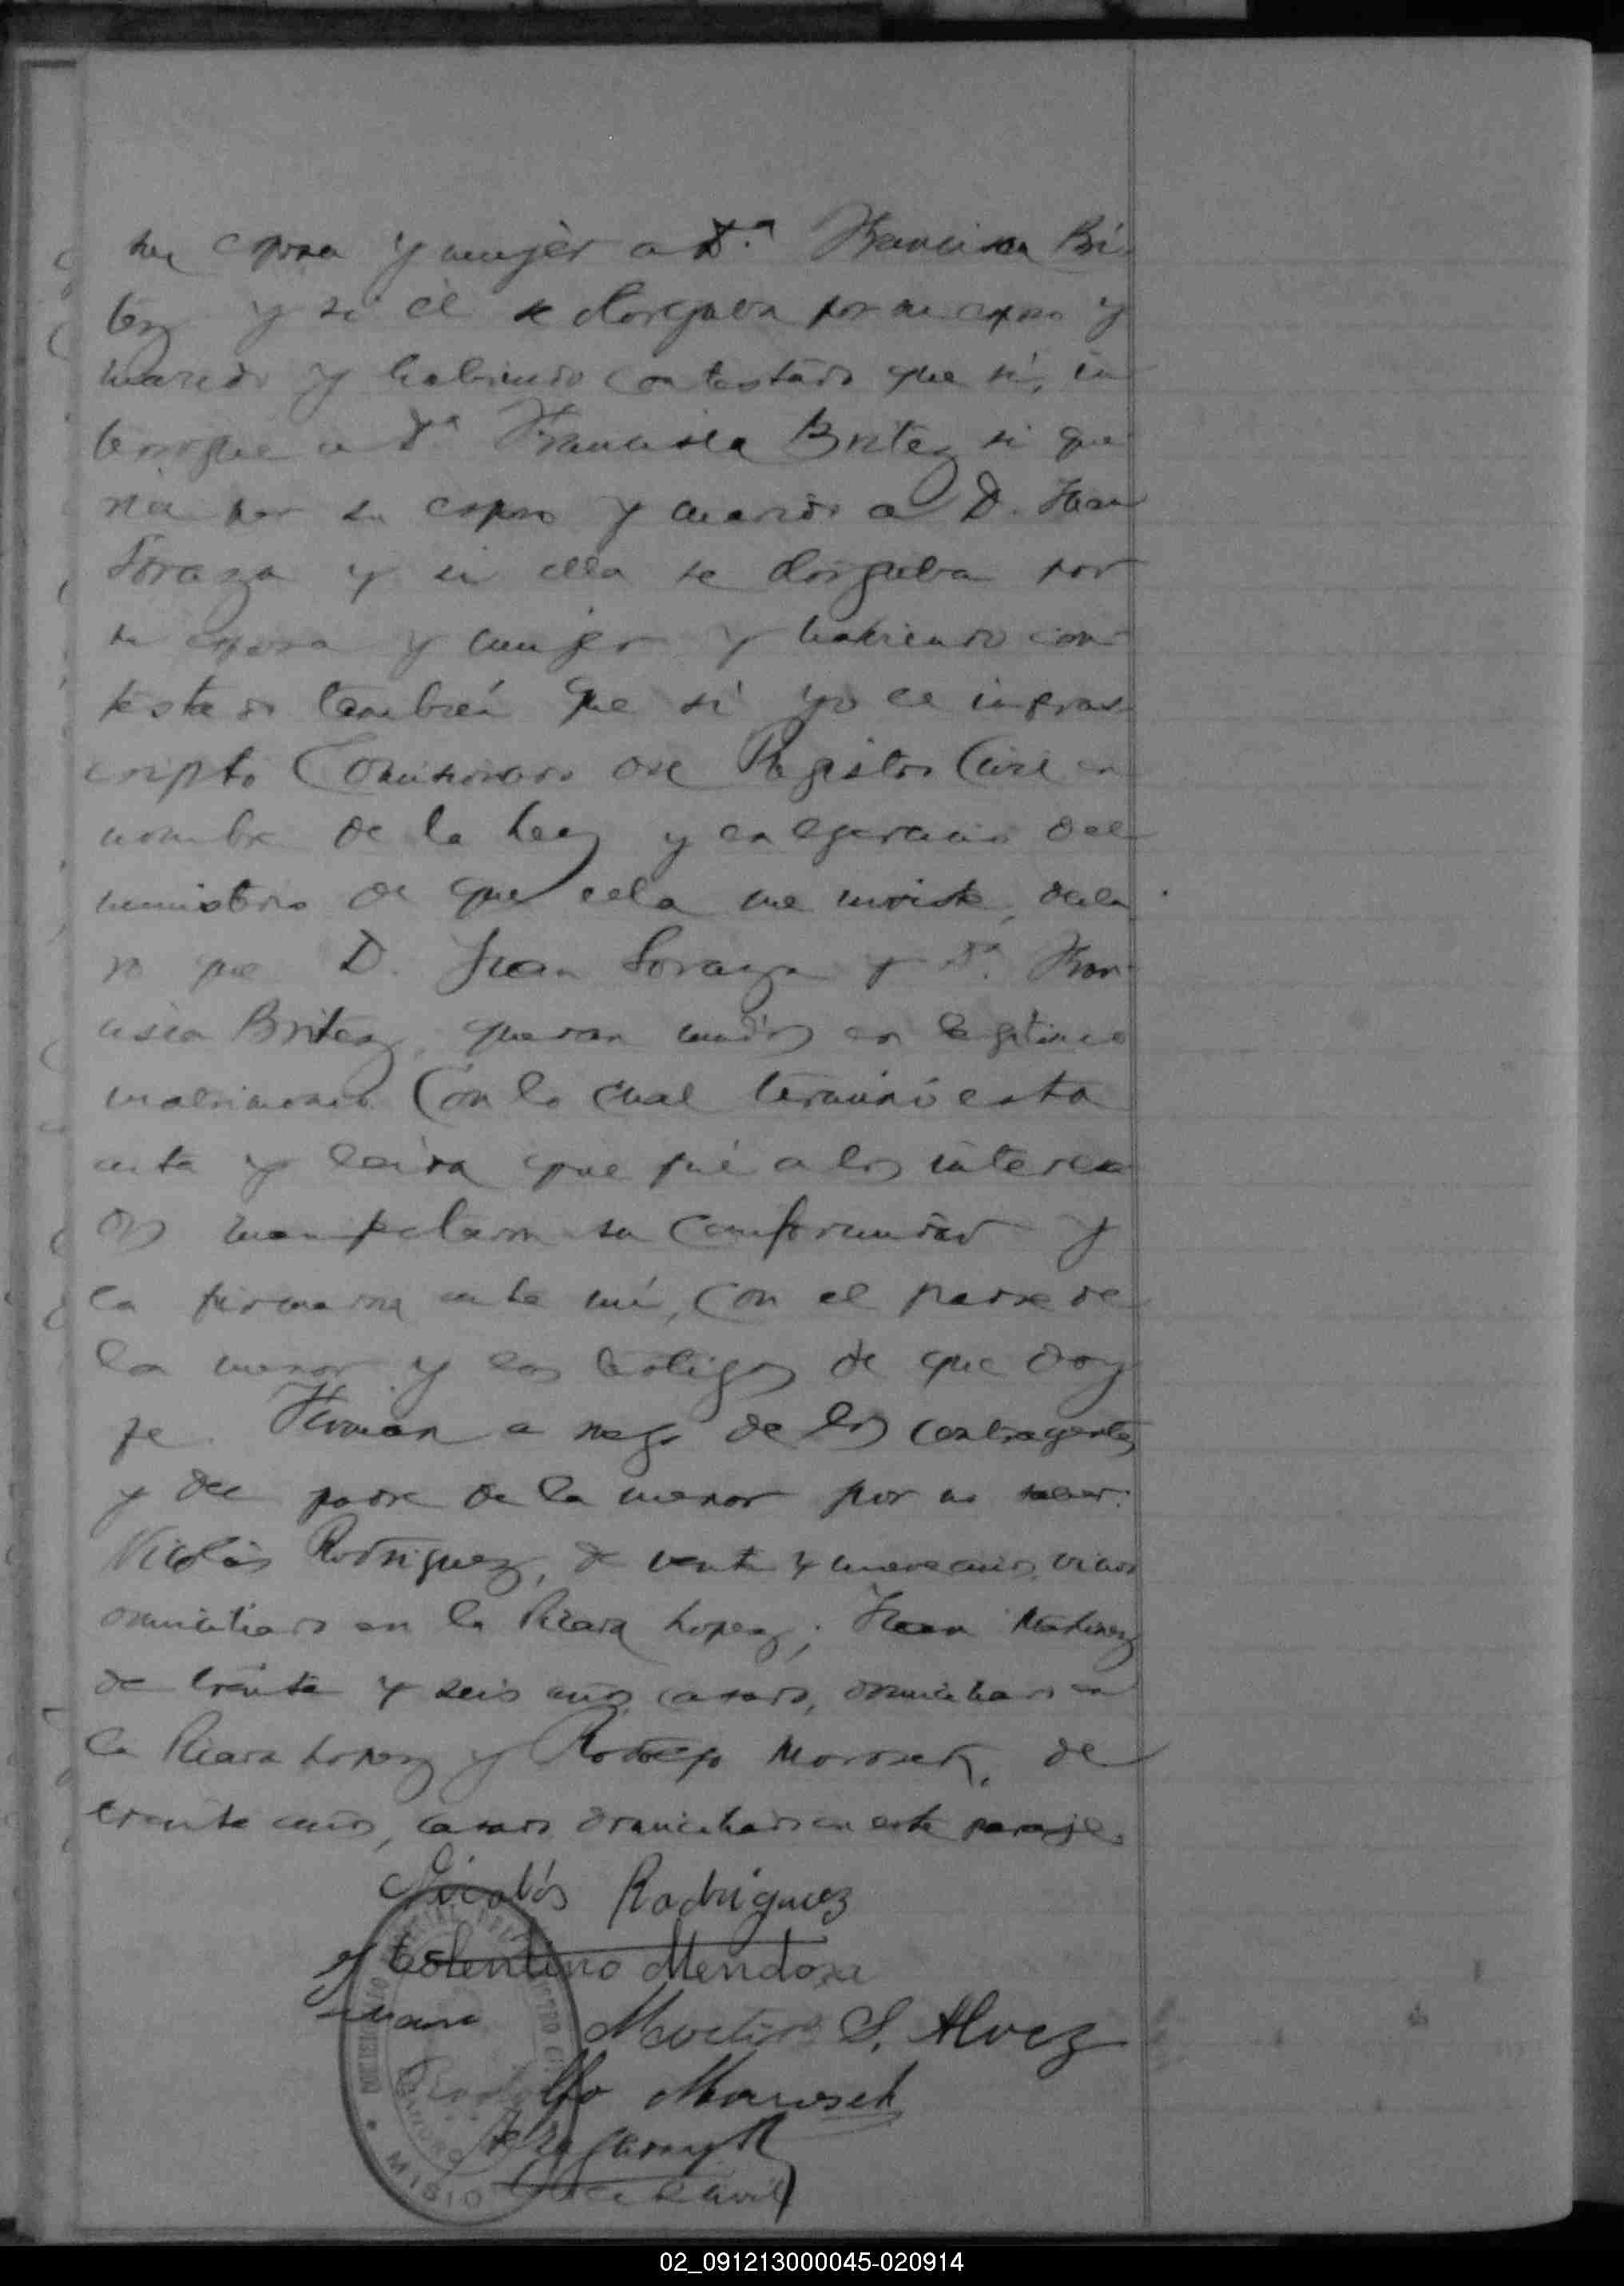 su esposa y mujer a Dª Francisca Bri
tez y si él se otorgaba por su esposo y
marido y habiendo contestado que sí, in
terrogué a Dª Francisca Britez si que
ria por su esposo y marido a D. Juan
Soraza y si ella se otorgaba por
su esposa y mujer y habiendo con
testado también que sí yo el infras
cripto Comisionado del Registro Civil en
nombre de la Ley y en ejercicio del
ministerio de que ella me inviste, decla
ro que D. Juan Soraza y Dª Fran
cisca Britez, quedan unidos en legítimo
matrimonio Con lo cual terminó esta
acta y leída que fué a los interesa
dos manifestaron su conformidad y
la firmaron ante mí, con el padre de
la menor y los testigos de que doy
fe. Firman a ruego de los contrayentes
y del padre de la menor por no saber:
Nicolás Rodriguez, de veinte y nueve años, viudo
domiciliado en la Picada Lopez; Juan Martinez
de treinta y seis años casado, domiciliado en
la Picada Lopez y Rodolfo Morosek, de
treinta años, casado domiciliado en este paraje.
Nicolás Rodriguez
Tolentino Mendoza
Martin S. Alvez
Rodolfo Morosek
MISIO